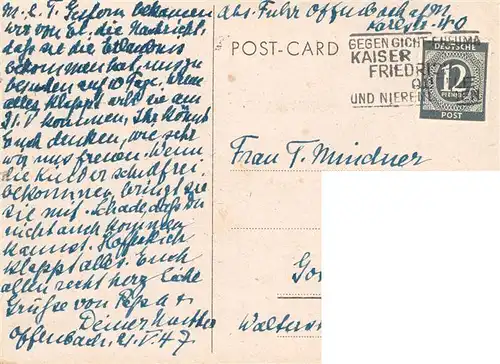 M. l. T. Gestern bekamen
wir von El. die Nachricht,
daß sie die Erlaubnis
bekommen hat, uns zu
besuchen auf 10 Tage. Wenn
alles klappt will sie am
31. V kommen. Ihr könnt
Euch denken, wie sehr
wir uns freuen. Wenn
die Kinder schulfrei
bekommen, bringt sie
sie mit. Schade, daß Du
nicht auch kommen
kannst. Hoffentlich
klappt alles. Euch
allen recht herzliche
Grüße von Papa u
Deiner Mutter
Offenbach, 21. V. 47.
Abs. Fuhr Offenbach a/M
Karlstr. 40
POST-CARD
GEGEN GICHT RHEUMA
KAISER
FRIEDRI
UND NIEREN
DEUTSCHE
12
PFENNIG
POST
Frau T. Mindner
Walter